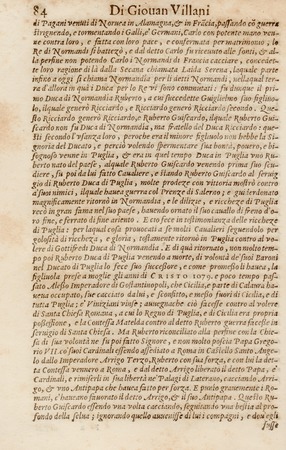 84 Di Giouan Villani
di Pagani venuti di Noruea in Alamagna, & in Fracia, passando cō guerra
struguendo, e tormentando i Galli, e' Germani, Carlo con potente mano ven-
ne contra loro, e fatta con loro pate, e confermata per matrimonio, lo
Re di Normandi si battezò, e dal detto Carlo fu riceuuto alle fonti, & al-
la perfine non potendo Carlo i Normandi di Francia cacciare, concedet-
te loro ragione di là dalla Secana chiamata Laida Serena, laquale parte
infino a oggi si chiama Normandia per li detti Normandi, nella qual ter-
ra d'allora in quà i Duca per lo Re vi sono commutati: fu dunque il pri-
mo Duca di Normandia Ruberto, a cui succedette Guglielmo suo figliuo-
lo, ilquale generò Ricciardo, e Ricciardo generò Ricciardo secondo. Quel-
sto Ricciardo generò Ricciardo, e Ruberto Guiscardo, ilquale Ruberto Gui-
scardo non fu Duca di Normandia, ma fratello del Duca Ricciardo: que-
sti secondo l'usanza loro, peroche era il minore figliuolo non hebbe la Si-
gnoria del Ducato, e perciò volendo spermentare sua bontà, pouero, e bi-
sognoso venne in Puglia, & era in quel tempo Duca in Puglia vno Ru-
berto nato del paese, alquale Ruberto Guiscardo venendo prima suo scu-
diere, fu poi da lui fatto Caualiere, e stando Ruberto Guiscardo al seruig-
gio di Ruberto Duca di Puglia, molte prodeze con vittoria mostrò contra
a' suoi nimici, ilquale hauea guerra col Prenze di Salerno; e guiderdonato
magnificamente ritornò in Normandia, e le dilizie, e riccheze di Puglia
recò in gran fama nel suo Paese, hauendo ornato il suo cauallo di freno d'o-
ro fine, e ferrato di fine ariento. E ciò fece in testimonianza delle riccheze
di Puglia: per laqual cosa prouocati a se molti Caualieri seguendolo per
golosità di riccheza, e gloria, tostamente ritornò in Puglia contro al vo-
lere di Gottifredi Duca di Normandia. E di quì ritornato, non molto tem-
po poi Ruberto Duca di Puglia venendo a morte, di volontà de' suoi Baroni
nel Ducato di Puglia lo fece suo successore, e come promesso li hauea, la
figliuola prese a moglie gli anni di CRISTO 1079. e poco tempo pas-
sato Alesso Imperadore di Gostantinopoli, che Cicilia, e parte di Calaura ha-
uea occupato, fue cacciato daini, e sconfitto, e messo fuori di Cicilia, e di
tutta Puglia; e' Viniziani vinse; auuegnache ciò facesse contro al volere
di Santa Chiesa Romana, a cui lo Regno di Puglia, e di Cicilia era propria
possessione, e la Contessa Matelda contra al detto Ruberto guerra facesse in
seruigio di Santa Chiesa. Ma Ruberto riconciliato alla perfine con la Chie-
sa di sua volontà ne fu poi fatto Signore, e non molto poi sia Papa Grego-
rio VII. co' suoi Cardinali essendo assediato a Roma in Castello Santo Ange-
lo dallo Imperadore Arrigo Terzo, Ruberto con sua forza, e con lui la detta
Contessa vennero a Roma, e dal detto Arrigo liberato il detto Papa, e'
Cardinali, e rimiserli in sua libertà ne' Palagi di Laterano, cacciando Arri-
go, & vno Antipapa che hauea fatto per forza. E punìo grauemente i Roma-
ni, c'haueano fauorato il detto Arrigo, & il suo Antipapa. Questo Ru-
berto Guiscardo essendo vna volta cacciando, seguitando vna bestia al pro-
fondo della selua; ignorando quello auuenisse di lui i compagni, e doue egli
fosse